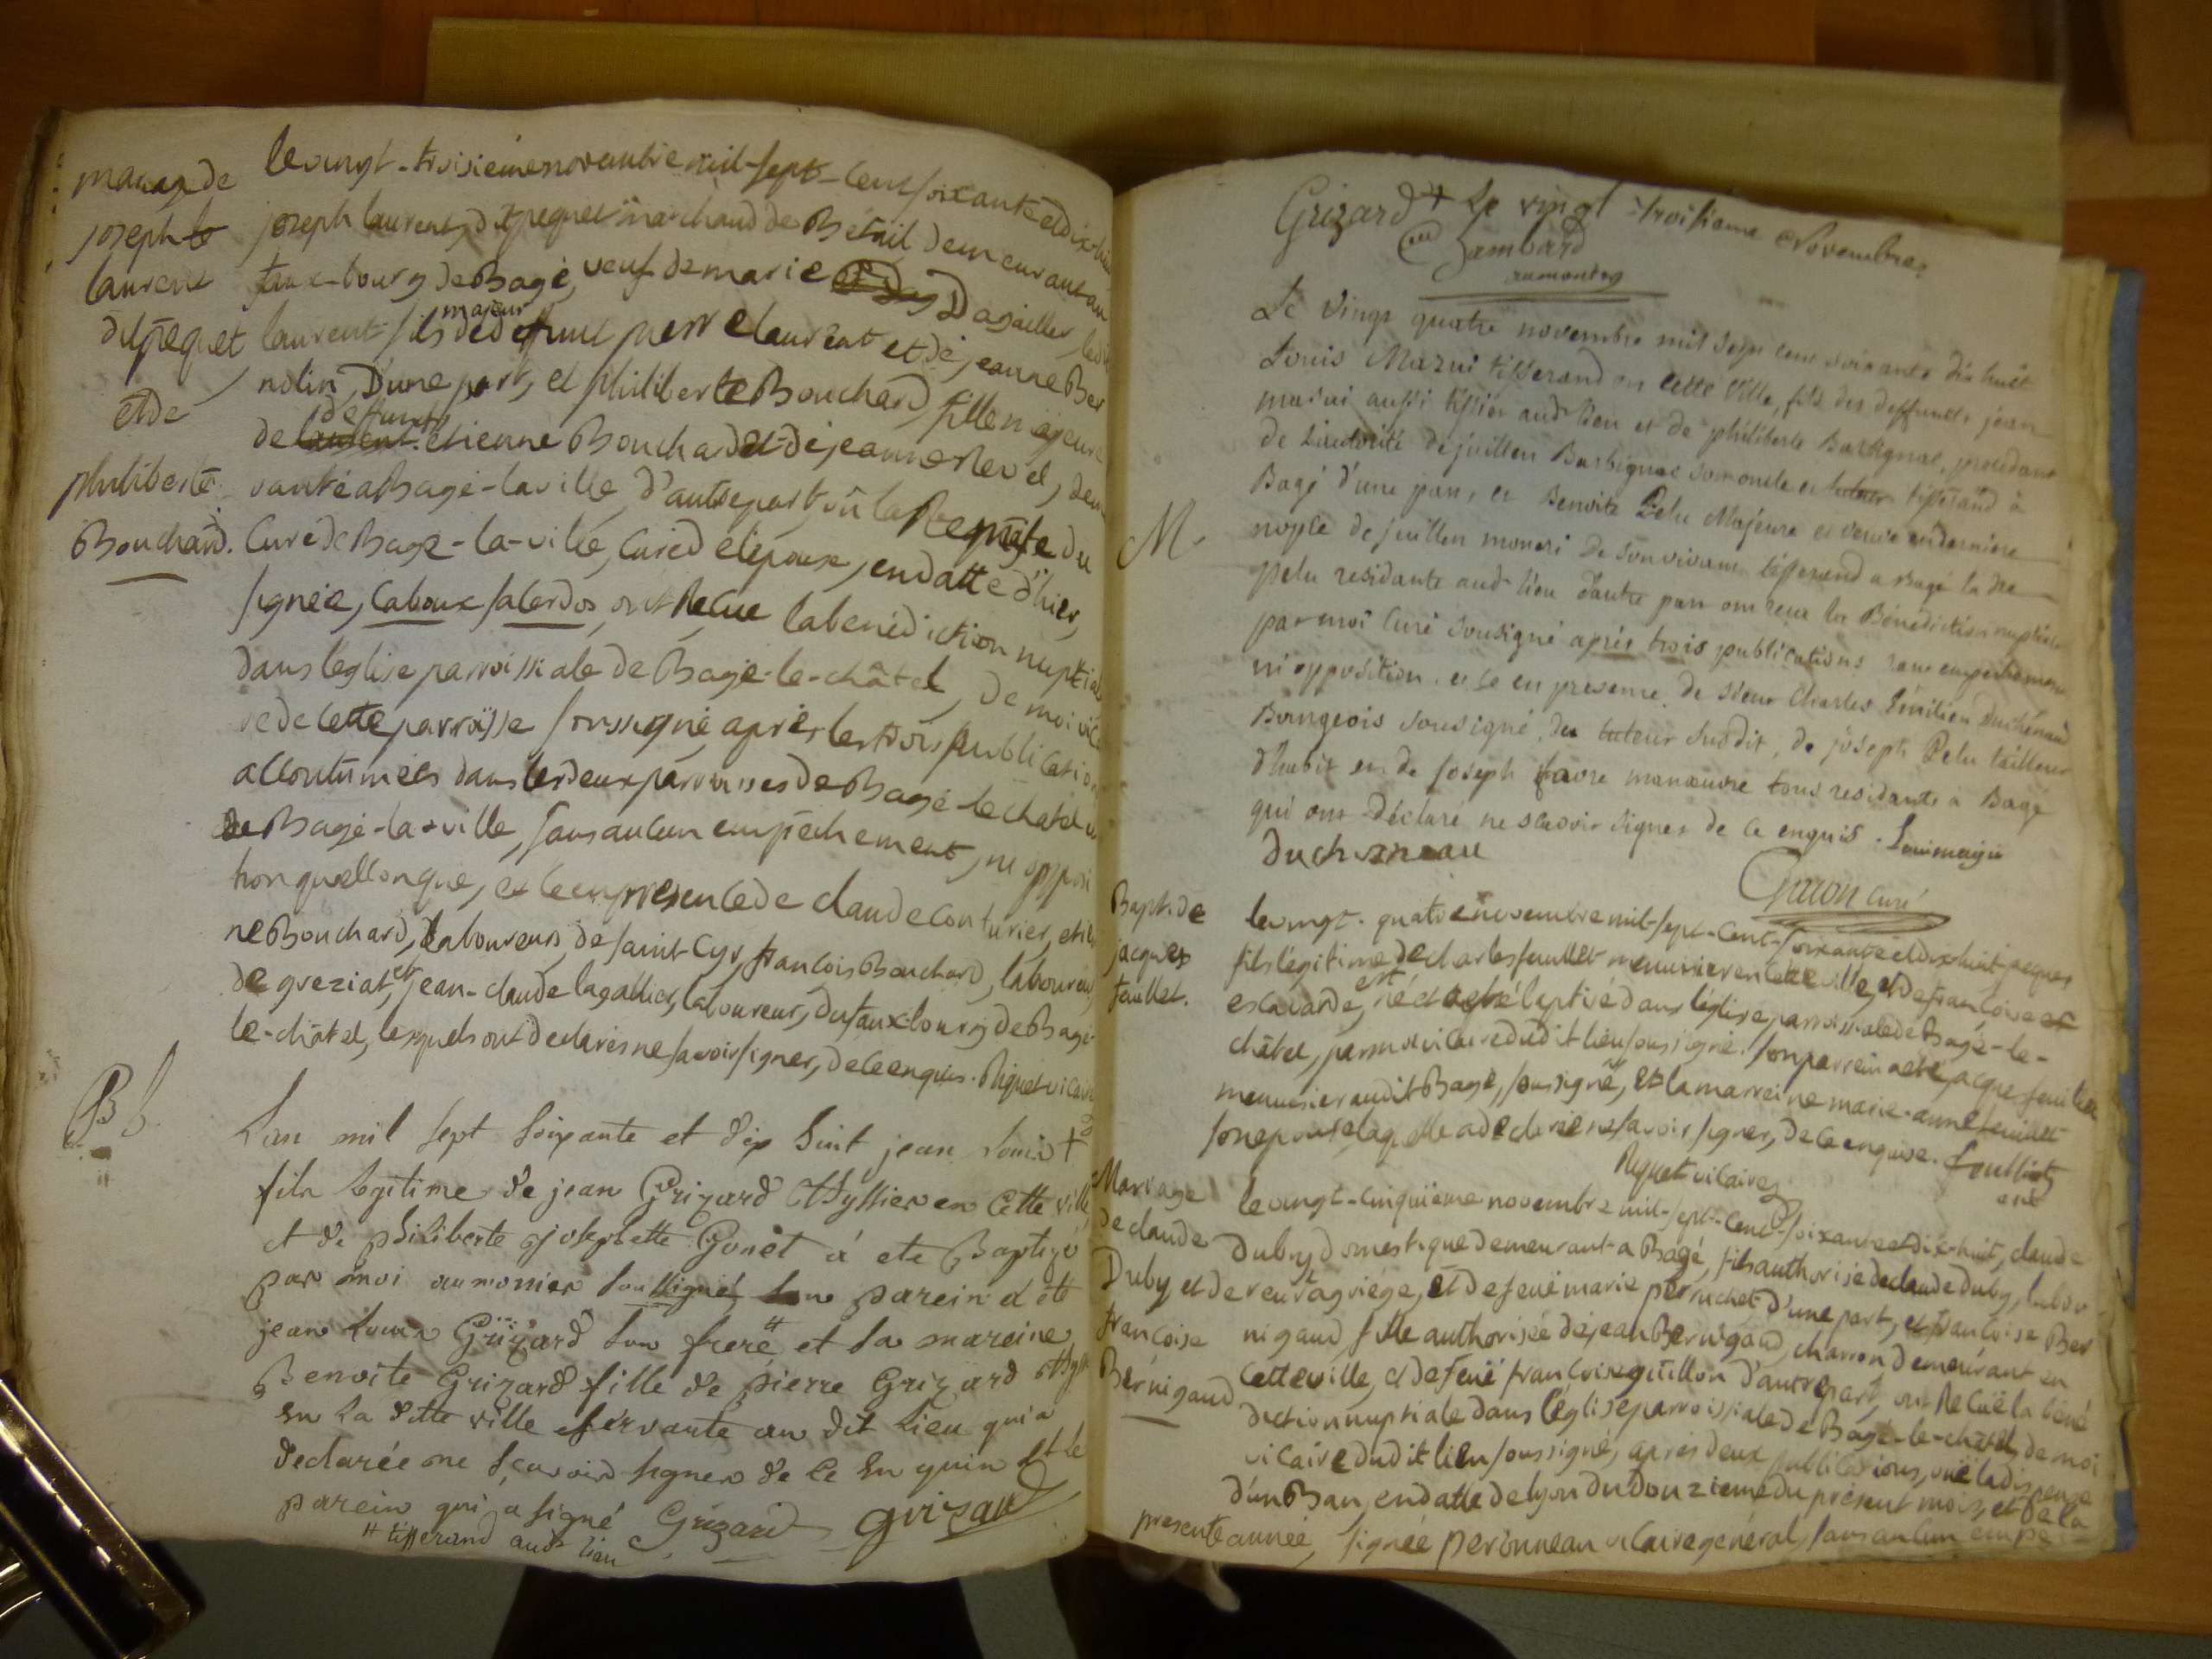 mariage de
joseph le
laurent
dit pequet
et de
philiberte
Bouchard.
le vingt-troisieme novembre mil-sept-cent soixante et dix-huit
joseph laurent, dit pequet marchand de Betail demeurant au
faux-bourg de Bagé, veuf de marie Dagailler, ledit
laurent fils majeur de defunt pierre laurent et de jeanne Ber
nolin, D'une part, et philiberte Bouchard, fille majeure
de deffunt etienne Bouchard et de jeanne Revel, demeu
rante a Bagé-la ville, d'autre part, vû la Requête du
Curé de Bagé-la-ville, Curé d'élépouse, en datte d'hier,
signée, Caboux sacerdos, ont Recue la bénédiction nuptiale
dans l'église parroissiale de Bagé-le-châtel, de moi vicai
re de cette parroisse soussigné après les trois publication
accoutumées dans les deux parroisses de Bagé-le châtel et
de Bagé-la-ville, sans aucun empêchement, ni opposi
tion quelconque, et ce en presence de claude couturier, etien
ne Bouchard, Laboureurs de saint-Cyr, francois Bouchard, laboureur
de greziat, et jean-claude lagallier, laboureur, du faux-bourg de Bagé-
le-châtel, lesquels ont declarés ne savoir signer, de ce enquis. Riquet vicaire
B
L'an mil sept soixante et dix huit jean Louis +
fils legitime de jean Grizard en Cette ville
et de philiberte josephette Gonet à ete Baptizé
par moi aumonier soussigné, son parein à été
jean Louis Grizard son frere # et sa mareine
Benoite Grizard fille de pierre Grizard
en la ditte ville servante au dit Lieu qui a
declarée ne sçavoir signer de ce enquis et le
parein qui a signé Grizard grizard
# tisserand audt lieu
Grizard + Le vingt troisieme Novembre
Jambard
aumonier
M.
Le vingt quatre novembre mil sept cent soixante dix huit
Louis Mazui tisserand en cette Ville, fils des deffunts jean
mazui aussi tissier audt lieu et de philiberte Barbignac, procedant
de l'autorité de juillen Barbignac son oncle et tuteur tisserand à
Bagé d'une part, et Benoite Pelu Majeure et veuve en derniere
nopce de juillen moneri de son vivant tisserand a Bagé la dte
pelu residante audt lieu d'autre part ont recu la Bénédiction nuptiale
par moi Curé sousigné après trois publications sans empechement
ni opposition. et ce en presence de sieur Charles Emilien Duchéneau
Bourgeois sousigné, du tuteur susdit, de joseph Pelu tailleur
d'habit et de joseph favre manœuvre tous residants à Bagé
qui ont Déclaré ne scavoir signer de ce enquis.
Duchéneau
curé
Bapt. de
jacques
feuillet.
le vingt-quatre novembre mil-sept-cent-soixante et dix huit jacques
fils légitime de charles feuillet menuisier en cette ville, et de francoise
escaiarde, est né et a été baptisé dans l'église parroissiale de Bagé-le-
châtel, par moi vicaire dudit lieu soussigné. son parrein a été jacque feuillet
menuisier audit Bagé, soussigné, et la marreine marie-anne feuillet
son epouse laquelle a declarée ne savoir signer, de ce enquise. feuilliet
Riquet vicaire
Mariage
de claude
Duby et de
francoise
Bernigaud
le vingt-cinquième novembre mil-sept-cent-soixante et dix-huit, claude
Duby domestique demeurant a Bagé, fils authorisé de claude duby, labou
reur a griége, et de feuë marie perruchet d'une part, et francoise Ber
nigaud fille authorisée de jean Bernigaud, charron demeurant en
cette ville, et de feuë francoise guillon d'autre part, ont Recuë la béné
diction nuptiale dans l'église parroissiale de Bagé-le-châtel, de moi
vicaire dudit lieu soussigné, après deux publications, vuë la dispense
d'un Ban, en datte de lyon du douzieme du présent mois, et de la
presente année, signée peronneau vicaire général, sans aucun empe